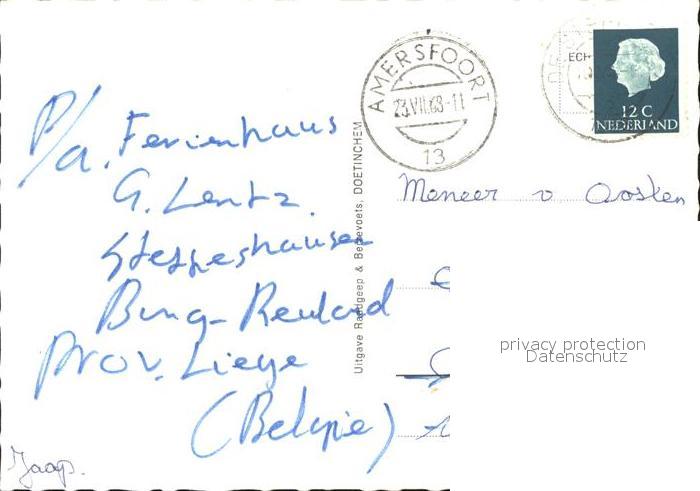 P/a. Ferienhaus
G. Lentz.
Steffeshausen
Burg-Reuland
Prov. Liege
(Belgie)
Jaap.
Uitgave Randgeep & Berntevoets, DOETINCHEM
AMERSFOORT
23.VII.68-11
13
ECH
12 C
NEDERLAND
Meneer v Oosten
privacy protection
Datenschutz